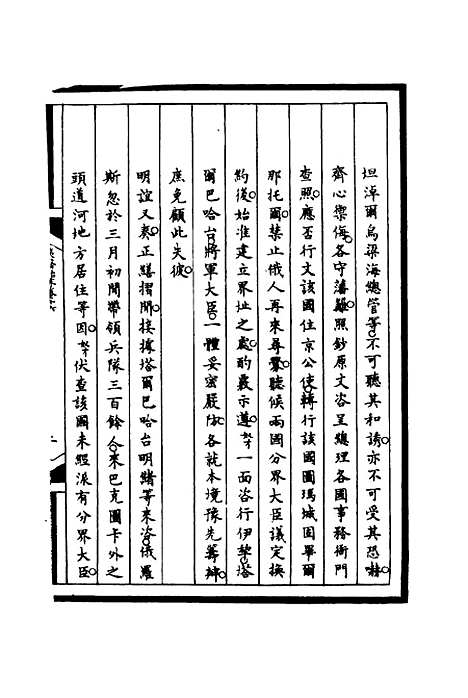 坦淖爾烏梁海總管等。不可聽其和誘。亦不可受其恐嚇。
齊心禦侮。各守藩籬。照鈔原文咨呈總理各國事務衙門
查照。應否行文該國住京公使。轉行該國圖瑪城固畢爾
那托爾。禁止俄人再來尋釁。聽候兩國分界大臣議定換
約後。始准建立界址之處。酌覈示遵。奴才一面咨行伊犂。塔
爾巴哈台。將軍大臣。一體妥密嚴防。各就本境豫先籌辦。
庶免顧此失彼。
明誼又奏。正繕摺間。接據塔爾巴哈台明緒等來咨。俄羅
斯忽於三月初間帶領兵隊三百餘人。來巴克圖卡外之
頭道河地方居住等因。奴才伏查該國未經派有分界大臣。